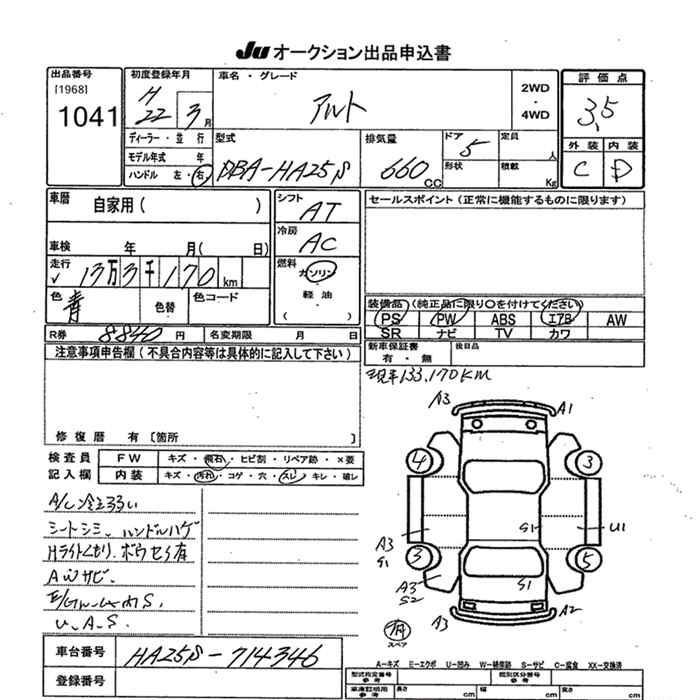 JU オークション出品申込書
出品番号
[1968]
1041
初度登録年月
H 22 3月
車名・グレード
アルト
2WD
・
4WD
評価点
3.5
ディーラー・並行
モデル年式 年
ハンドル 左・右
型式
DBA-HA25S
排気量
660 CC
ドア
5
形状
定員
人
積載
Kg
外装 内装
C D
車歴
自家用( )
車検 年 月( 日)
走行
13万3千170 km
色
青
色替
色コード
シフト
AT
冷房
AC
燃料
ガソリン
・
軽油
・
( )
セールスポイント(正常に機能するものに限ります)
装備品(純正品に限り○を付けてください)
PS PW ABS エアB AW
SR ナビ TV カワ
R券 8840 円
名変期限 月 日
新車保証書
有・無
後日品
注意事項申告欄(不具合内容等は具体的に記入して下さい)
修復歴 有〔箇所 〕
現車133,170KM
検査員
記入欄
FW
キズ・飛石・ヒビ割・リペア跡・×要
内装
キズ・汚れ・コゲ・穴・スレ・キレ・破レ
A/C冷え弱い
シートシミ、ハンドルハゲ
Hライトくもり.ボウセイ有
AWサビ.
U.A.S.
A3 A1
4 3
S1 U1
A3
S1
3 5
A3
S2
S1
A3 A2
有
スペア
A-キズ E-エクボ U-凹み W-補修跡 S-サビ C-腐食 XX-交換済
車台番号
HA25S-714346
登録番号
型式指定番号
参考
類別区分番号
参考
車庫証明用
参考
長さ cm
幅 cm
高さ cm